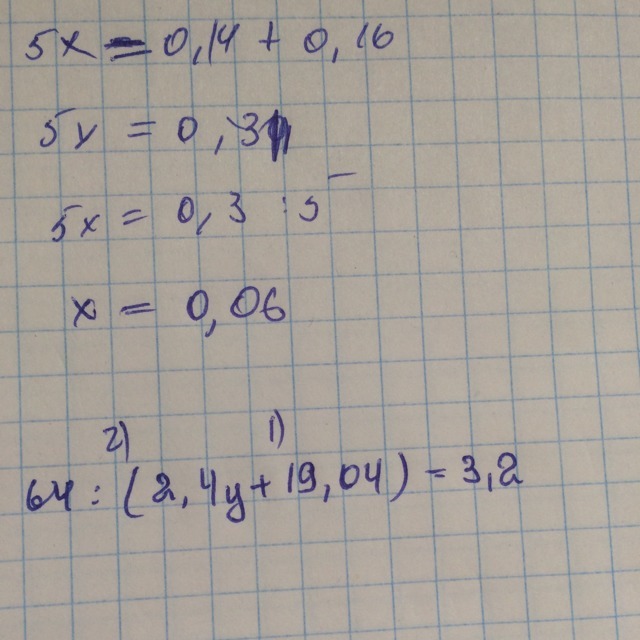 5x = 0,14 + 0,16
5y = 0,3
5x = 0,3 : 5
x = 0,06
2) 1)
64 : (2,4y + 19,04) = 3,2